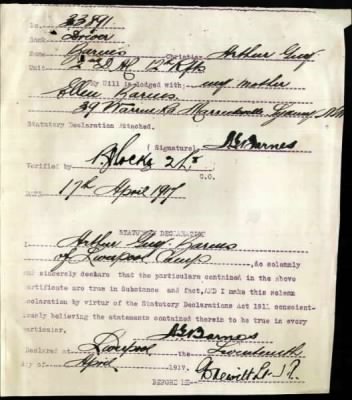 No. 33841
Rank Driver
Name Barnes Christian Arthur Guy
Unit 12 Rfts
My Will is lodged with; my mother
Ellen Barnes
39
Statutory Declaration Attached.
(Signature) AGBarnes
Verified by 2Lt
O.C.
Date 17th April 1917
STATUTORY DECLARATION
I Arthur Guy Barnes
of Liverpool Camp, do solemnly
and sincerely declare that the particulars contained in the above
certificate are true in Substance and fact, AND I make this solemn
declaration by virtue of the Statutory Declarations Act 1911 conscient-
iously believing the statements contained therein to be true in every
particular.
AGBarnes
Declared at Liverpool the Seventeenth
day of April 1917. Lt. J.P.
BEFORE ME